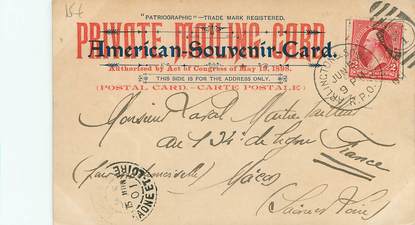 15f
"PATRIOGRAPHIC"—TRADE MARK REGISTERED.
PRIVATE MAILING CARD.
American-Souvenir-Card.
Authorized by Act of Congress of May 19, 1898.
THIS SIDE IS FOR THE ADDRESS ONLY.
(POSTAL CARD.—CARTE POSTALE)
ARLINGTON
JUN
9
R.P.O.
2 2
Monsieur Maître tailleur
au 134 de ligne
France
Mâcon
Saône et Loire
SAONE-ET-LOIRE